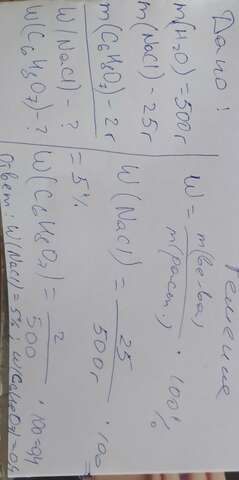 Дано:
m(H2O) = 500г
m(NaCl) - 25г
m(C6H8O7) - 2г
W(NaCl) - ?
W(C6H8O7) - ?
Решение
W = m(ве-ва) / m(раст.) · 100%
W(NaCl) = 25 / 500г · 100 =
= 5%
W(C6H8O7) = 2 / 500 · 100 = 0,4
Ответ: W(NaCl) = 5%; W(C6H8O7) = 0,4